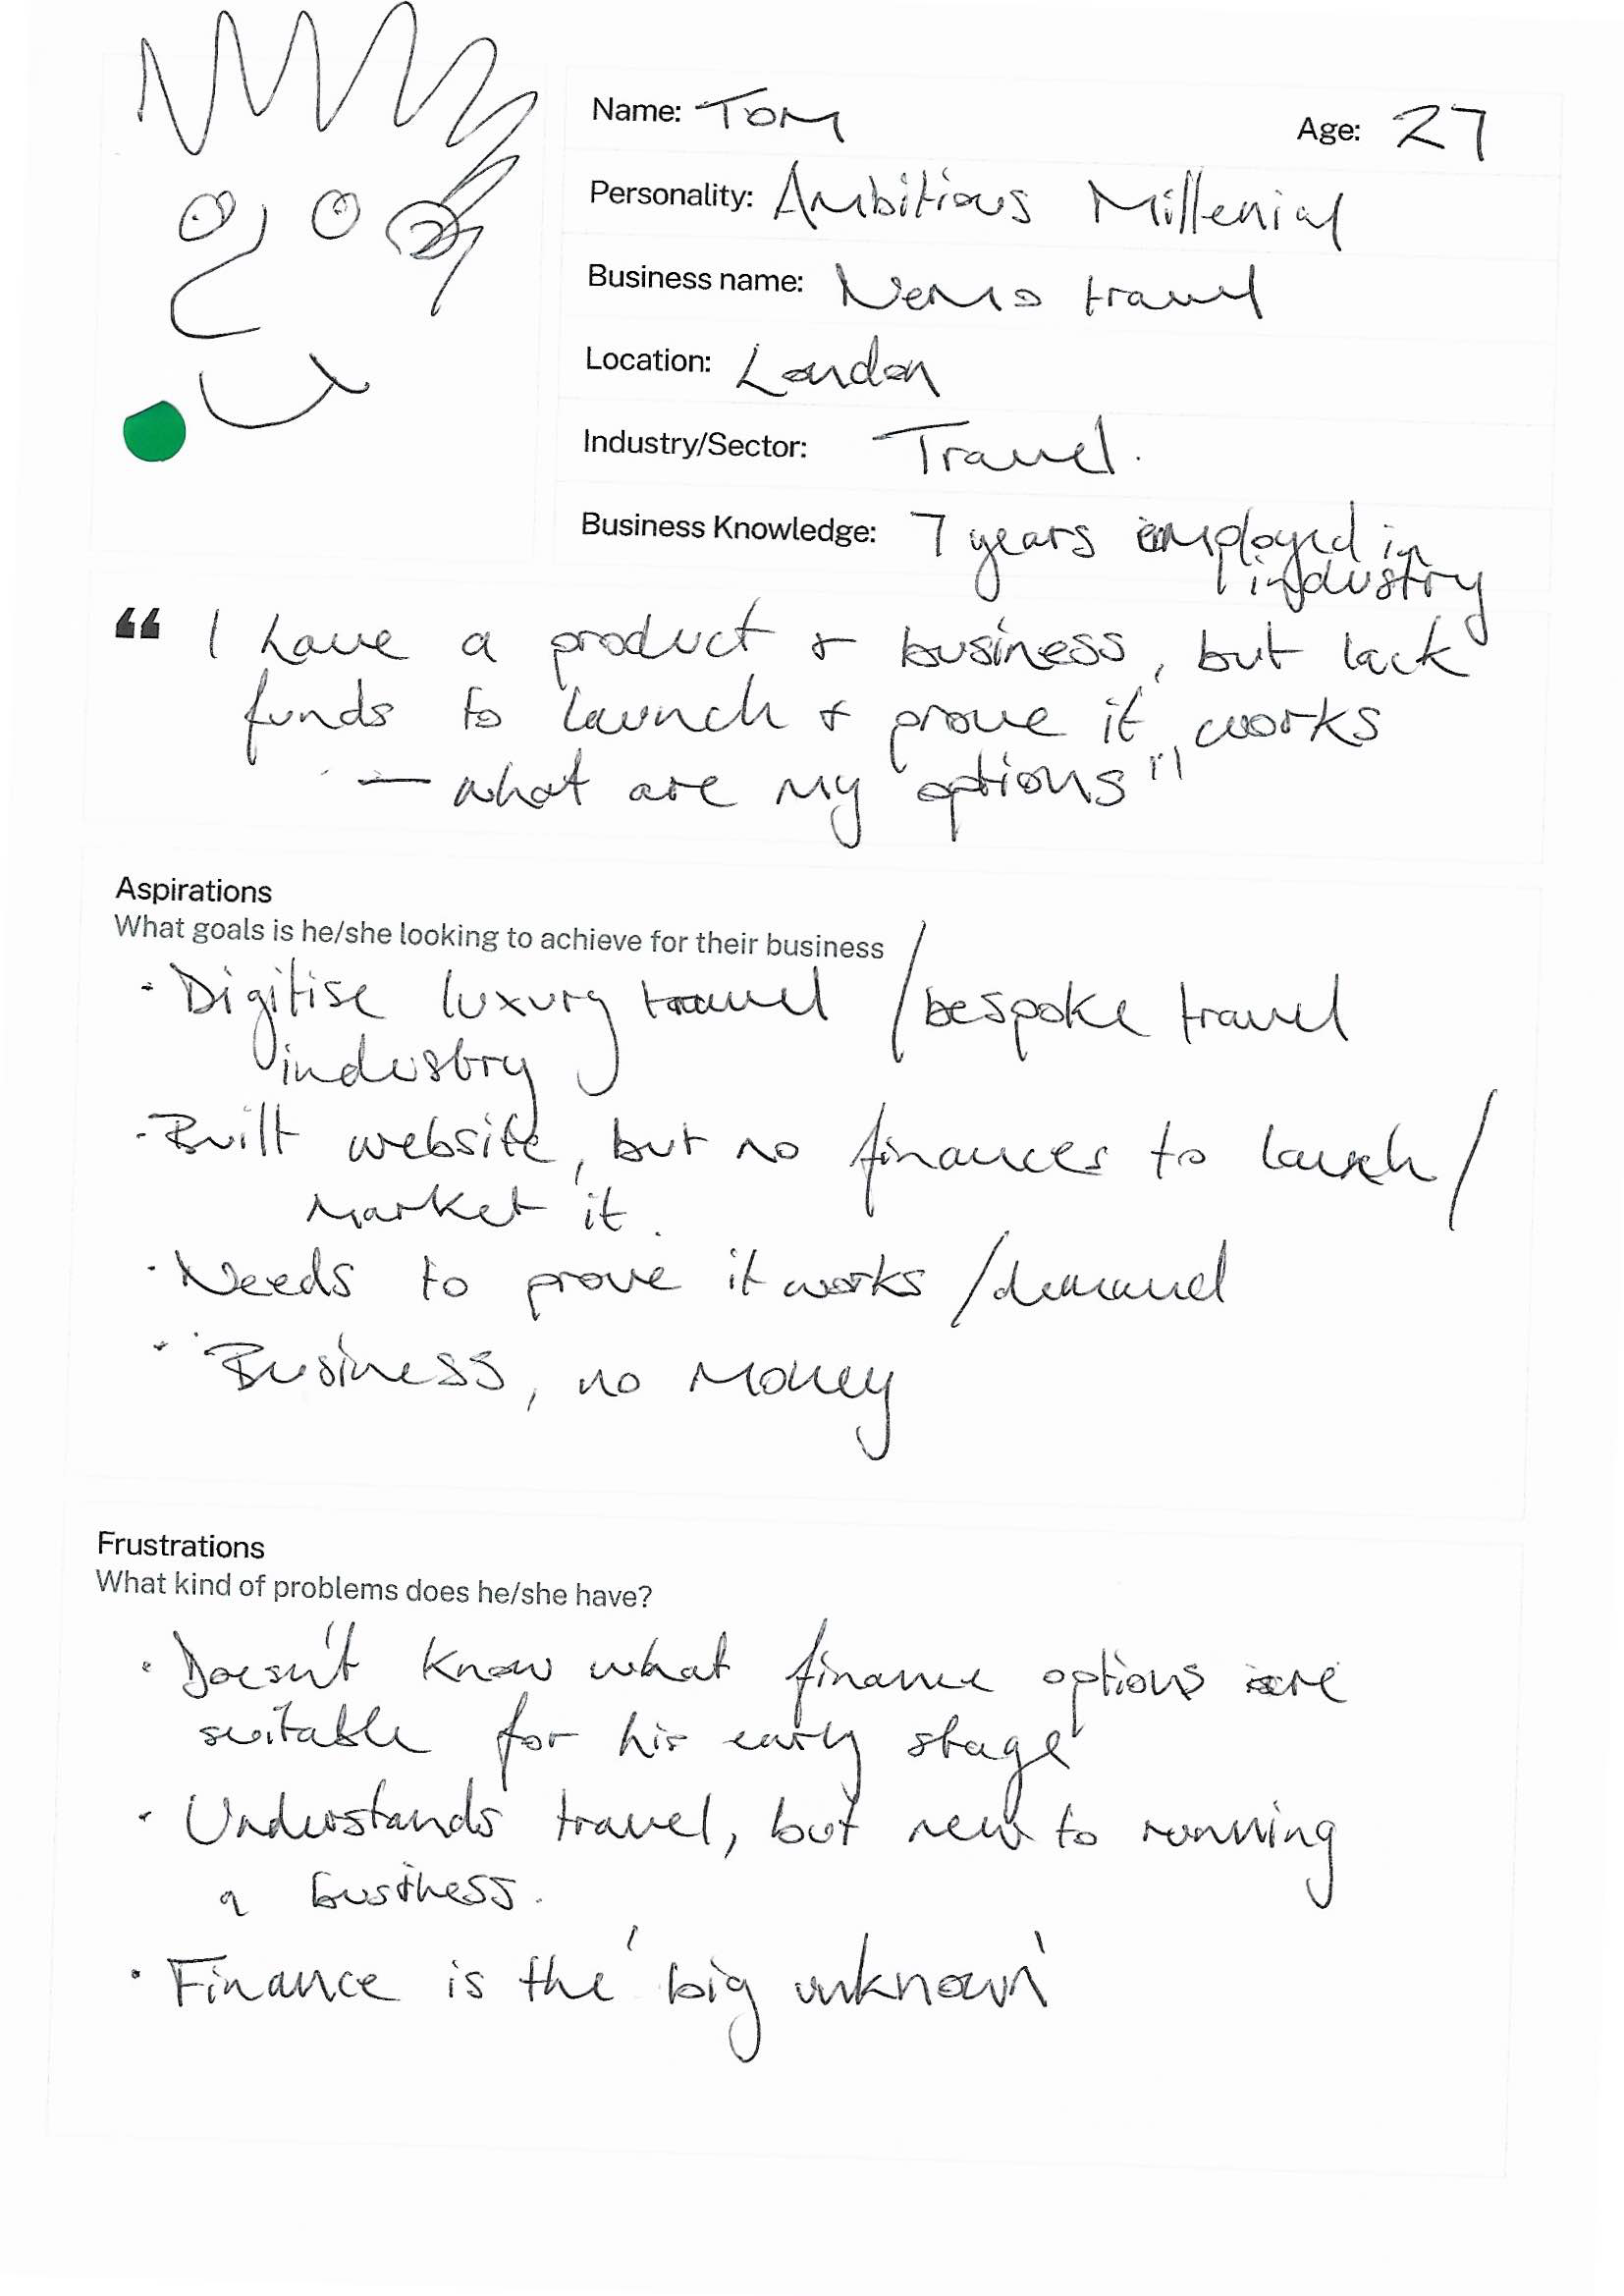 Name: TOM
Age: 27
Personality: Ambitious Millenial
Business name: Nemo travel
Location: London
Industry/Sector: Travel.
Business Knowledge: 7 years employed in
industry
“ I have a product & business, but lack
funds to launch & prove it works
— what are my options"
Aspirations
What goals is he/she looking to achieve for their business
· Digitise luxury travel / bespoke travel
industry
· Built website, but no finances to launch /
market it.
· Needs to prove it works / demand
· Business, no money
Frustrations
What kind of problems does he/she have?
· Doesn't know what finance options are
suitable for his early stage
· Understands travel, but new to running
a business.
· Finance is the 'big unknown'